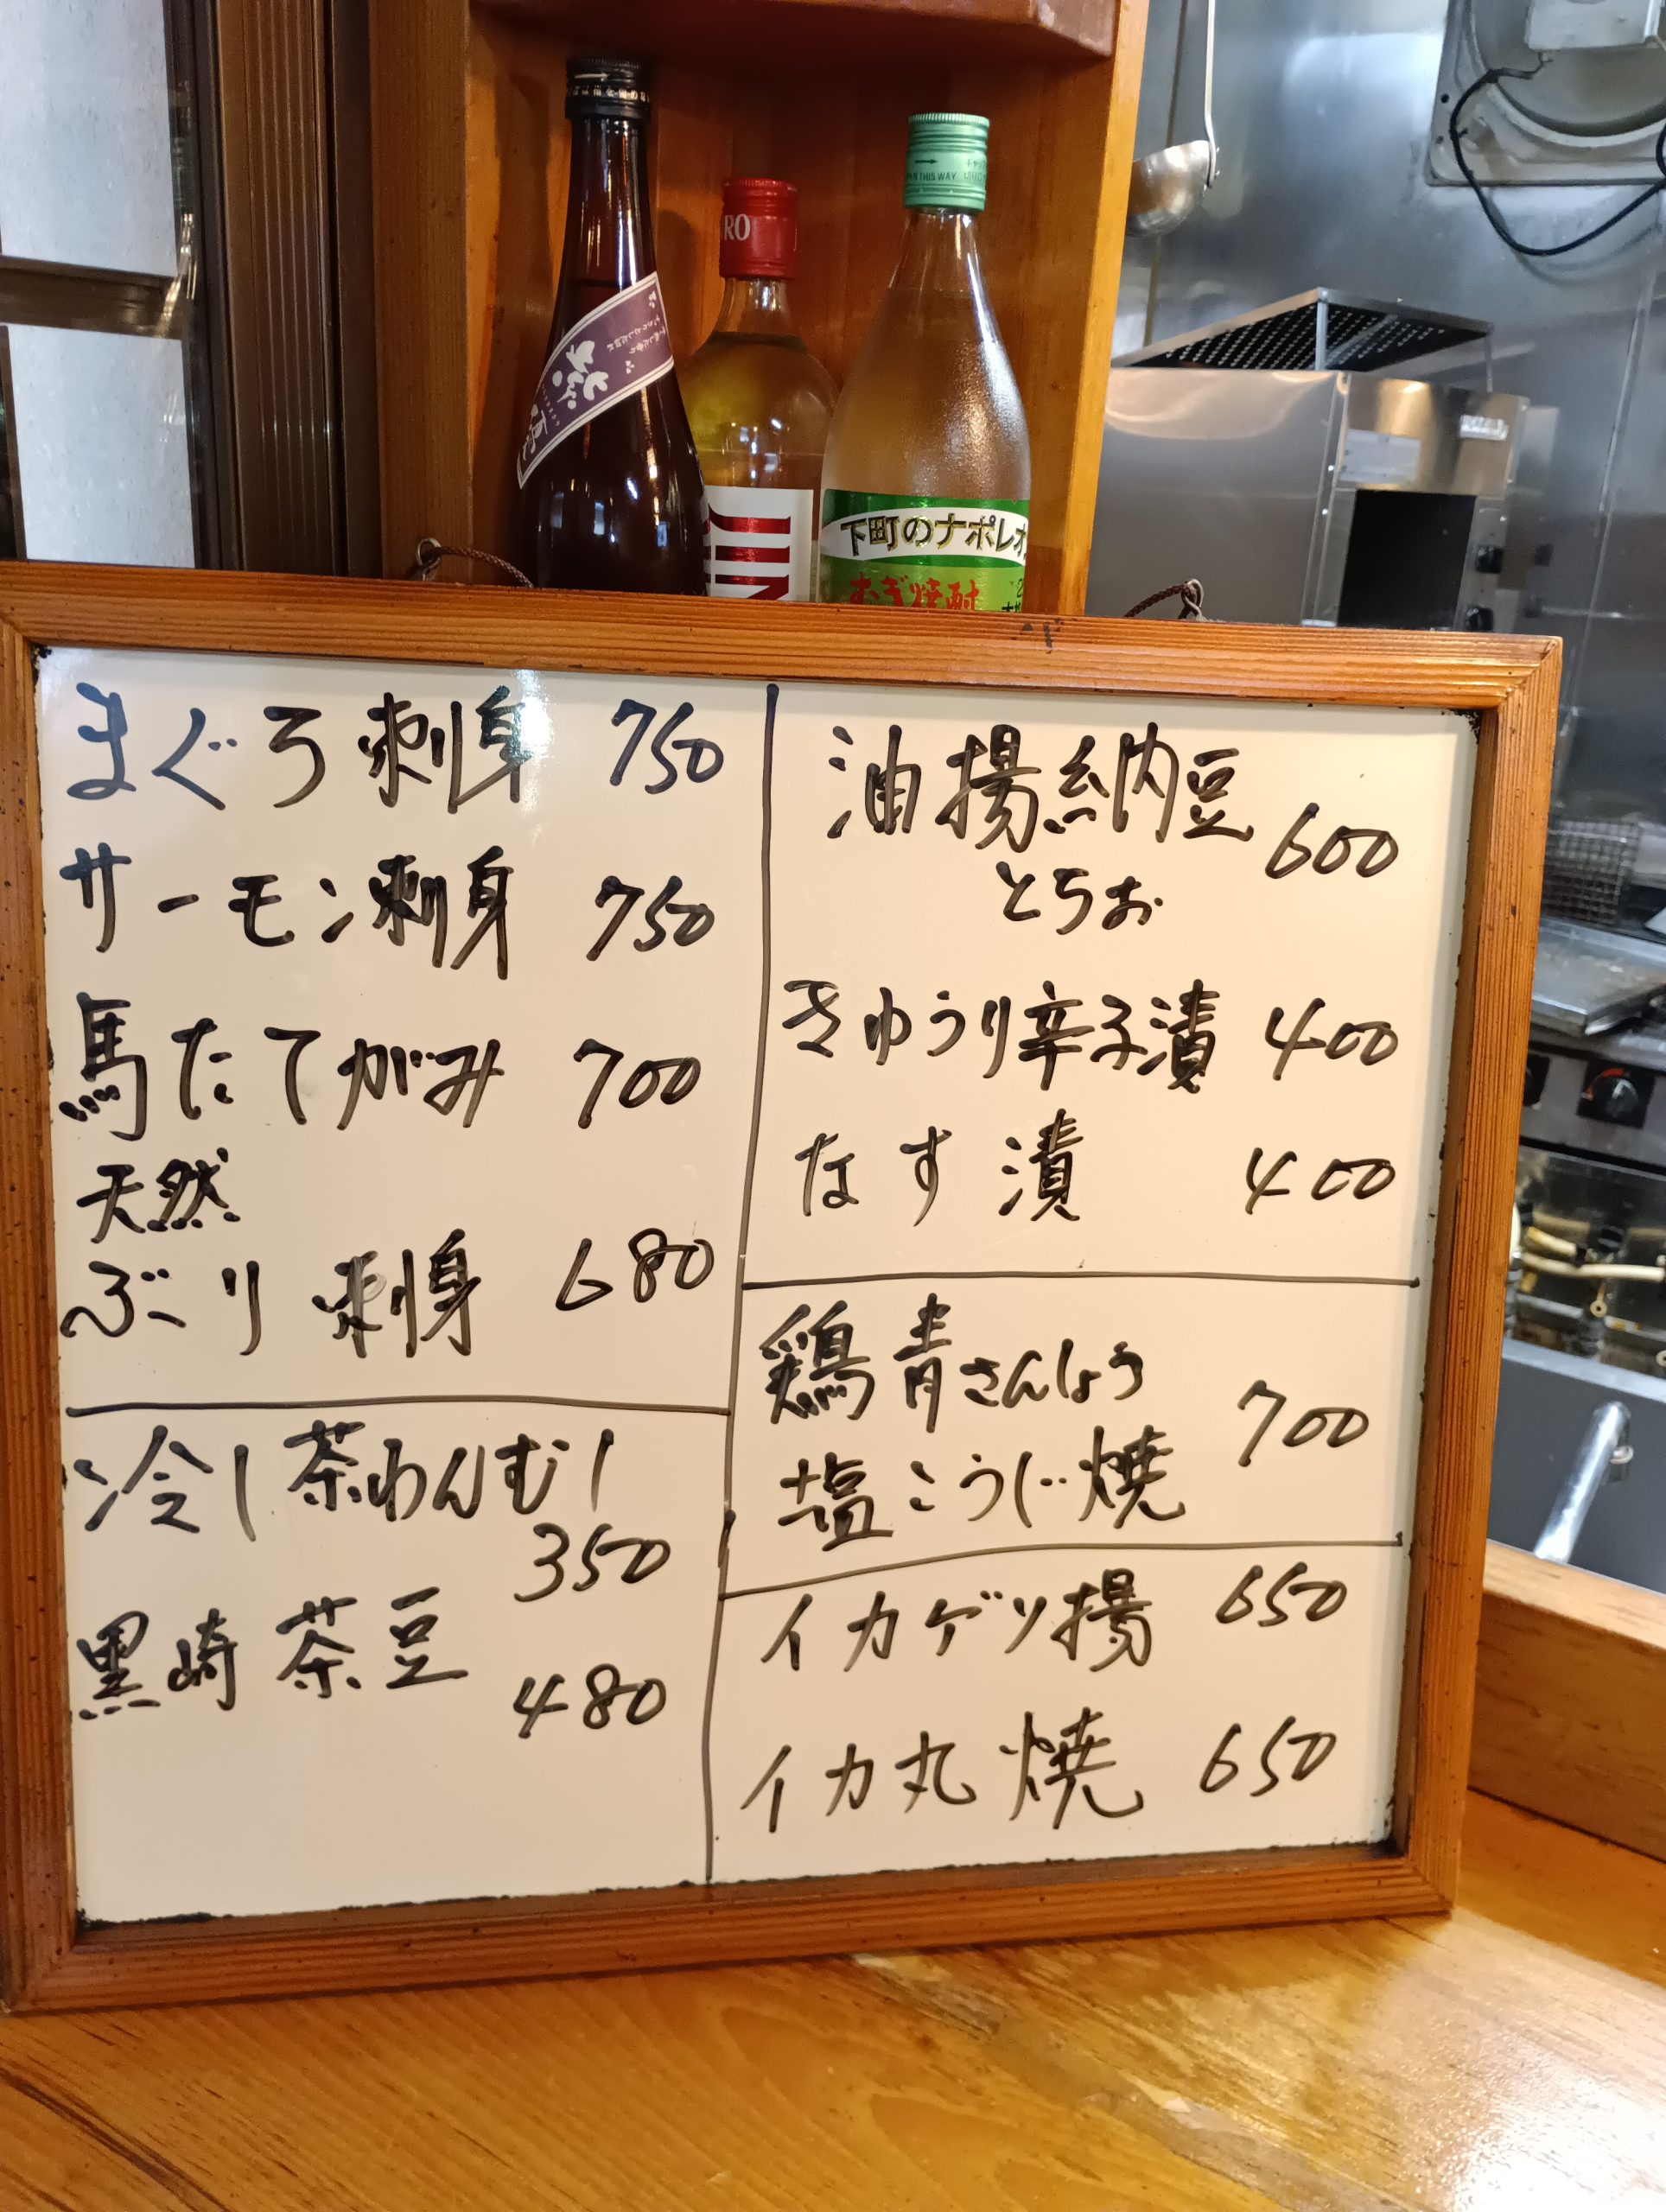 RO
下町のナポレオ
むぎ焼酎
まぐろ刺身 750
サーモン刺身 750
馬たてがみ 700
天然
ぶり刺身 680
冷し茶わんむし
350
黒崎茶豆
480
油揚納豆
とちお 600
きゅうり辛子漬 400
なす漬 400
鶏青さんしょう
塩こうじ焼 700
イカゲソ揚 650
イカ丸焼 650